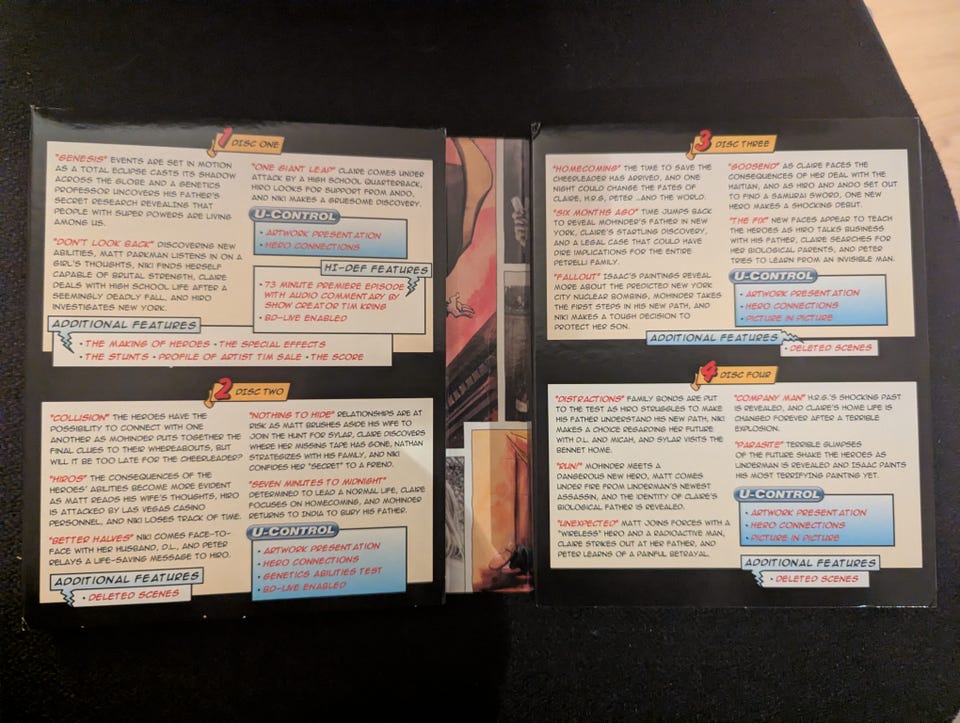 1 DISC ONE
"GENESIS" EVENTS ARE SET IN MOTION
AS A TOTAL ECLIPSE CASTS ITS SHADOW
ACROSS THE GLOBE AND A GENETICS
PROFESSOR UNCOVERS HIS FATHER'S
SECRET RESEARCH REVEALING THAT
PEOPLE WITH SUPER POWERS ARE LIVING
AMONG US.
"DON'T LOOK BACK" DISCOVERING NEW
ABILITIES, MATT PARKMAN LISTENS IN ON A
GIRL'S THOUGHTS, NIKI FINDS HERSELF
CAPABLE OF BRUTAL STRENGTH, CLAIRE
DEALS WITH HIGH SCHOOL LIFE AFTER A
SEEMINGLY DEADLY FALL, AND HIRO
INVESTIGATES NEW YORK.
"ONE GIANT LEAP" CLAIRE COMES UNDER
ATTACK BY A HIGH SCHOOL QUARTERBACK,
HIRO LOOKS FOR SUPPORT FROM ANDO,
AND NIKI MAKES A GRUESOME DISCOVERY.
U-CONTROL
• ARTWORK PRESENTATION
• HERO CONNECTIONS
HI-DEF FEATURES
• 73 MINUTE PREMIERE EPISODE
WITH AUDIO COMMENTARY BY
SHOW CREATOR TIM KRING
• BD-LIVE ENABLED
ADDITIONAL FEATURES
• THE MAKING OF HEROES • THE SPECIAL EFFECTS
• THE STUNTS • PROFILE OF ARTIST TIM SALE • THE SCORE
2 DISC TWO
"COLLISION" THE HEROES HAVE THE
POSSIBILITY TO CONNECT WITH ONE
ANOTHER AS MOHINDER PUTS TOGETHER THE
FINAL CLUES TO THEIR WHEREABOUTS, BUT
WILL IT BE TOO LATE FOR THE CHEERLEADER?
"HIROS" THE CONSEQUENCES OF THE
HEROES' ABILITIES BECOME MORE EVIDENT
AS MATT READS HIS WIFE'S THOUGHTS, HIRO
IS ATTACKED BY LAS VEGAS CASINO
PERSONNEL, AND NIKI LOSES TRACK OF TIME.
"BETTER HALVES" NIKI COMES FACE-TO-
FACE WITH HER HUSBAND, D.L., AND PETER
RELAYS A LIFE-SAVING MESSAGE TO HIRO.
"NOTHING TO HIDE" RELATIONSHIPS ARE AT
RISK AS MATT BRUSHES ASIDE HIS WIFE TO
JOIN THE HUNT FOR SYLAR, CLAIRE DISCOVERS
WHERE HER MISSING TAPE HAS GONE, NATHAN
STRATEGIZES WITH HIS FAMILY, AND NIKI
CONFIDES HER "SECRET" TO A FRIEND.
"SEVEN MINUTES TO MIDNIGHT"
DETERMINED TO LEAD A NORMAL LIFE, CLAIRE
FOCUSES ON HOMECOMING, AND MOHINDER
RETURNS TO INDIA TO BURY HIS FATHER.
U-CONTROL
• ARTWORK PRESENTATION
• HERO CONNECTIONS
• GENETICS ABILITIES TEST
• BD-LIVE ENABLED
ADDITIONAL FEATURES
• DELETED SCENES
3 DISC THREE
"HOMECOMING" THE TIME TO SAVE THE
CHEERLEADER HAS ARRIVED, AND ONE
NIGHT COULD CHANGE THE FATES OF
CLAIRE, H.R.G, PETER ...AND THE WORLD.
"SIX MONTHS AGO" TIME JUMPS BACK
TO REVEAL MOHINDER'S FATHER IN NEW
YORK, CLAIRE'S STARTLING DISCOVERY,
AND A LEGAL CASE THAT COULD HAVE
DIRE IMPLICATIONS FOR THE ENTIRE
PETRELLI FAMILY.
"FALLOUT" ISAAC'S PAINTINGS REVEAL
MORE ABOUT THE PREDICTED NEW YORK
CITY NUCLEAR BOMBING, MOHINDER TAKES
THE FIRST STEPS IN HIS NEW PATH, AND
NIKI MAKES A TOUGH DECISION TO
PROTECT HER SON.
"GODSEND" AS CLAIRE FACES THE
CONSEQUENCES OF HER DEAL WITH THE
HAITIAN, AND AS HIRO AND ANDO SET OUT
TO FIND A SAMURAI SWORD, ONE NEW
HERO MAKES A SHOCKING DEBUT.
"THE FIX" NEW FACES APPEAR TO TEACH
THE HEROES AS HIRO TALKS BUSINESS
WITH HIS FATHER, CLAIRE SEARCHES FOR
HER BIOLOGICAL PARENTS, AND PETER
TRIES TO LEARN FROM AN INVISIBLE MAN.
U-CONTROL
• ARTWORK PRESENTATION
• HERO CONNECTIONS
• PICTURE IN PICTURE
ADDITIONAL FEATURES
• DELETED SCENES
4 DISC FOUR
"DISTRACTIONS" FAMILY BONDS ARE PUT
TO THE TEST AS HIRO STRUGGLES TO MAKE
HIS FATHER UNDERSTAND HIS NEW PATH, NIKI
MAKES A CHOICE REGARDING HER FUTURE
WITH D.L. AND MICAH, AND SYLAR VISITS THE
BENNET HOME.
"RUN!" MOHINDER MEETS A
DANGEROUS NEW HERO, MATT COMES
UNDER FIRE FROM LINDERMAN'S NEWEST
ASSASSIN, AND THE IDENTITY OF CLAIRE'S
BIOLOGICAL FATHER IS REVEALED.
"UNEXPECTED" MATT JOINS FORCES WITH A
"WIRELESS" HERO AND A RADIOACTIVE MAN,
CLAIRE STRIKES OUT AT HER FATHER, AND
PETER LEARNS OF A PAINFUL BETRAYAL.
"COMPANY MAN" H.R.G.'S SHOCKING PAST
IS REVEALED, AND CLAIRE'S HOME LIFE IS
CHANGED FOREVER AFTER A TERRIBLE
EXPLOSION.
"PARASITE" TERRIBLE GLIMPSES
OF THE FUTURE SHAKE THE HEROES AS
LINDERMAN IS REVEALED AND ISAAC PAINTS
HIS MOST TERRIFYING PAINTING YET.
U-CONTROL
• ARTWORK PRESENTATION
• HERO CONNECTIONS
• PICTURE IN PICTURE
ADDITIONAL FEATURES
• DELETED SCENES